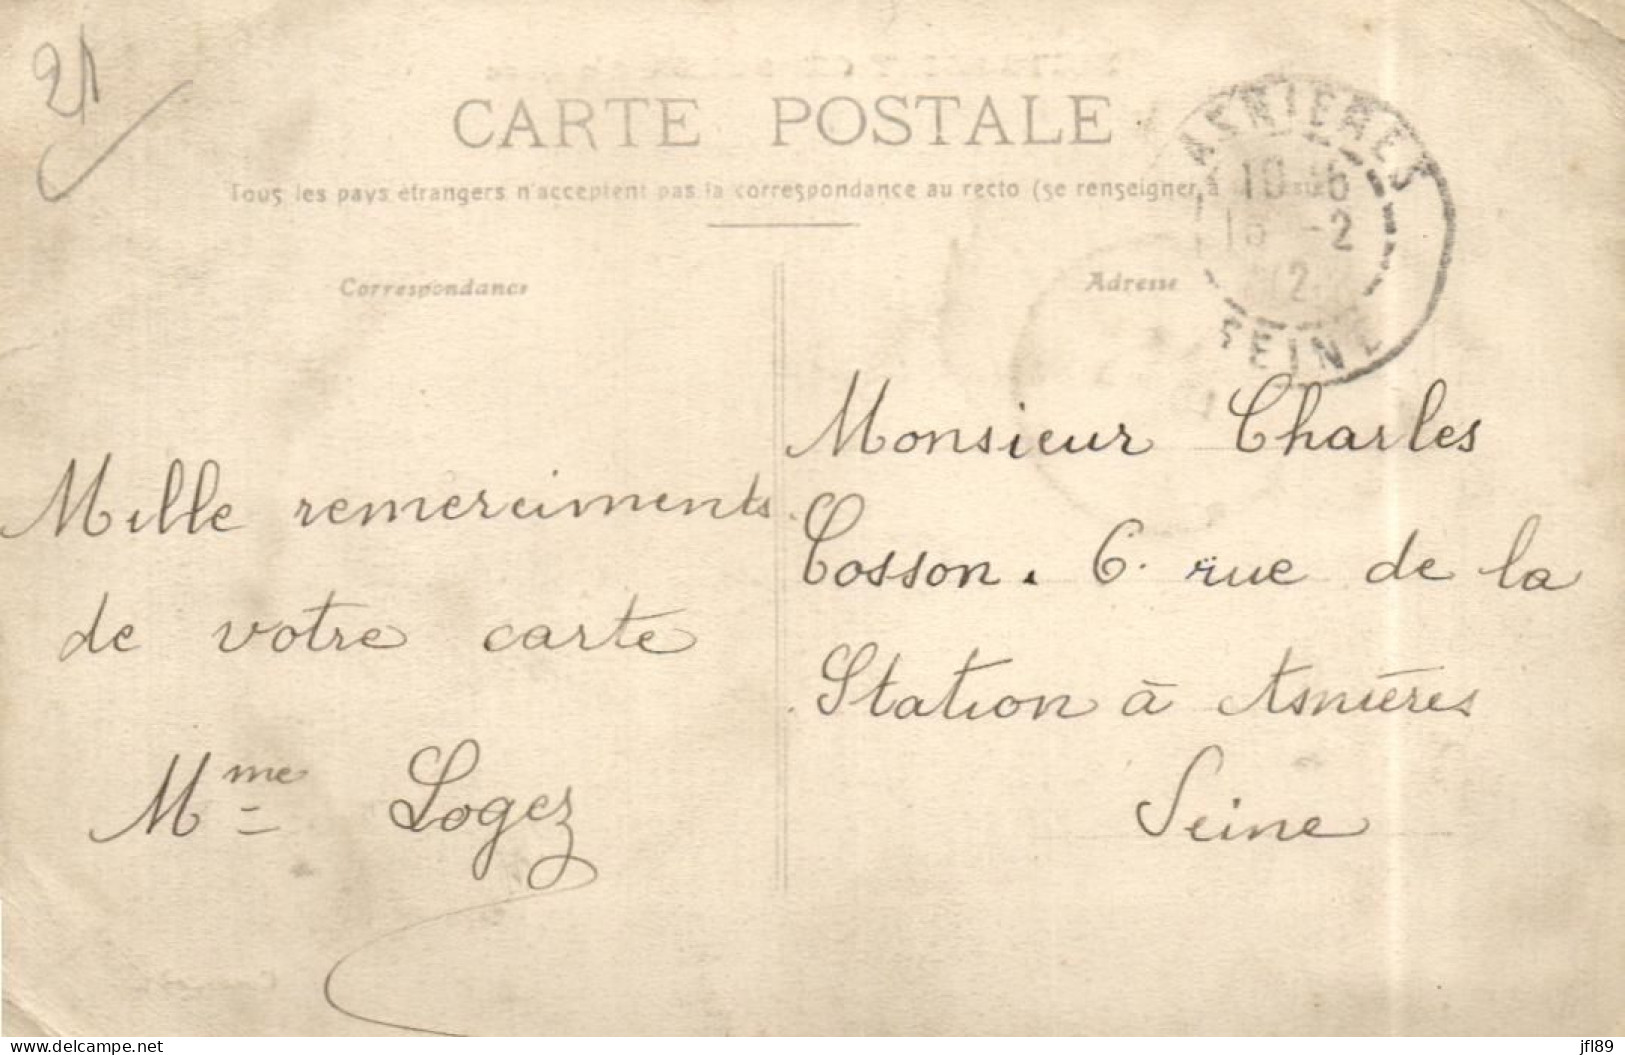 21
CARTE POSTALE
Tous les pays étrangers n'acceptent pas la correspondance au recto (se renseigner à
ASNIERES
10
16 -2
12
SEINE
Correspondance
Adresse
Mille remerciments
de votre carte
Mme Logez
Monsieur Charles
Cosson. 6. rue de la
Station à Asnières
Seine
delcampe.net
jfl89